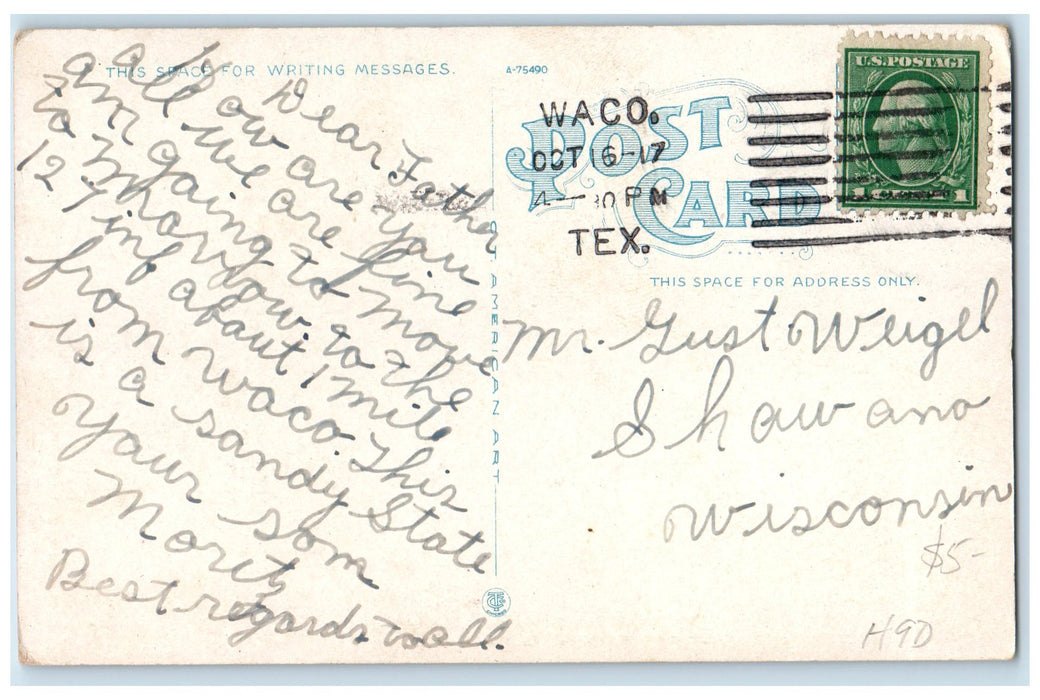 THIS SPACE FOR WRITING MESSAGES.
A-75490
Dear Father
How are you
all we are fine
am going to move
to morrow to the
12 7 inf about 1 mile
from Waco. This
is a sandy State
your som
Moritz
Best regards to all.
C.T. AMERICAN ART
POST CARD
WACO.
OCT 16-17
4—30 PM
TEX.
U.S. POSTAGE
1 1
THIS SPACE FOR ADDRESS ONLY.
Mr. Gust Weigel
Shawano
Wisconsin
$5-
H9D